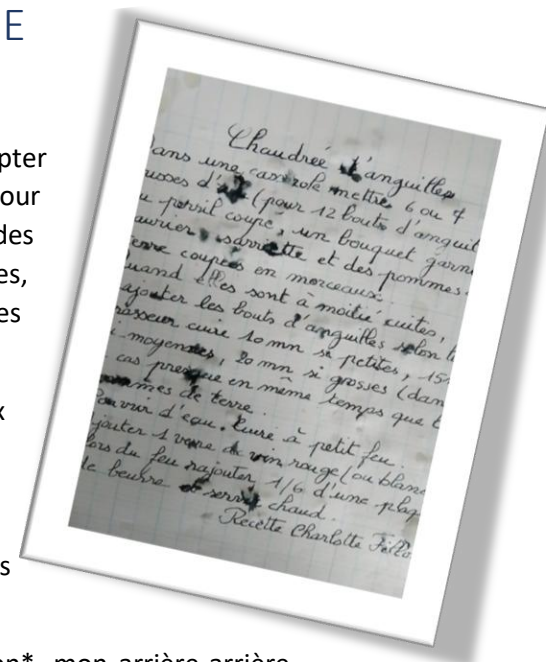 E
pter
our
des
es,
es
x
s
on*, mon arrière arrière
Chaudrée d'anguilles
ans une casserole mettre 6 ou 7
usses d'ail (pour 12 bouts d'anguil
u persil coupé, un bouquet garni
aurier, sarriette et des pommes
erre coupées en morceaux.
uand elles sont à moitié cuites,
ajouter les bouts d'anguilles selon l
rasseur cuire 10 mn si petites, 15
i moyennes, 20 mn si grosses (dan
cas presque en même temps que l
mmes de terre.
ouvrir d'eau. Cuire à petit feu.
jouter 1 verre de vin rouge (ou blanc
ors du feu rajouter 1/6 d'une plaq
e beurre et servir chaud.
Recette Charlotte